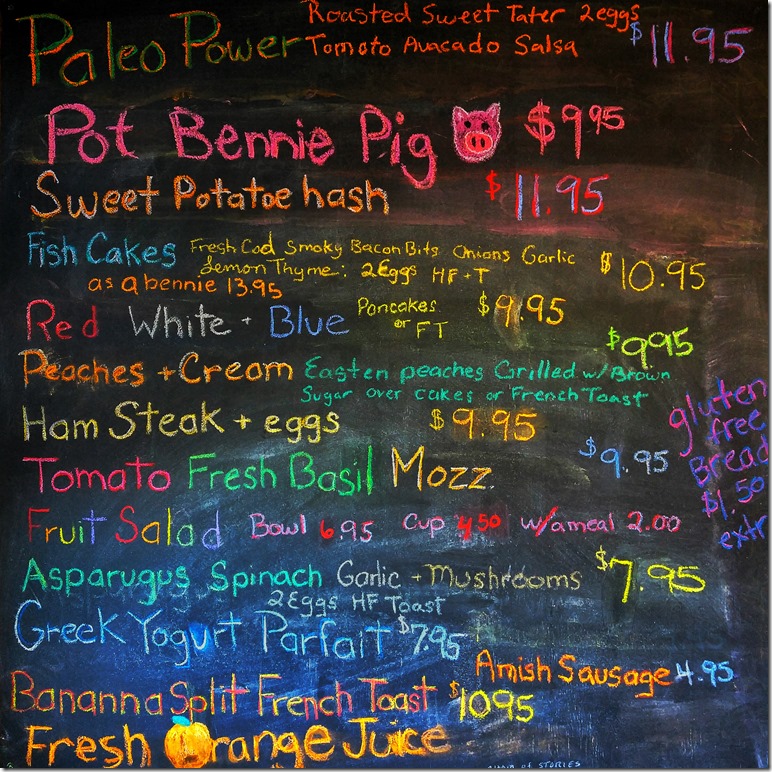 Paleo Power Roasted Sweet Tater 2eggs
Tomato Avacado Salsa $11.95
Pot Bennie Pig $9.95
Sweet Potatoe hash $11.95
Fish Cakes Fresh Cod Smoky Bacon Bits Onions Garlic
Lemon Thyme: 2Eggs HF+T $10.95
as a bennie 13.95
Red White + Blue Pancakes or FT $9.95
Peaches + Cream Easten peaches Grilled w/Brown $9.95
Sugar over cakes or French Toast
Ham Steak + eggs $9.95
Tomato Fresh Basil Mozz. $9.95
gluten
free
Bread
$1.50
extr
Fruit Salad Bowl 6.95 Cup 4.50 w/a meal 2.00
Asparugus Spinach Garlic + Mushrooms $7.95
2 Eggs HF Toast
Greek Yogurt Parfait $7.95
Amish Sausage 4.95
Bananna Split French Toast $1095
Fresh Orange Juice
OF STORIES